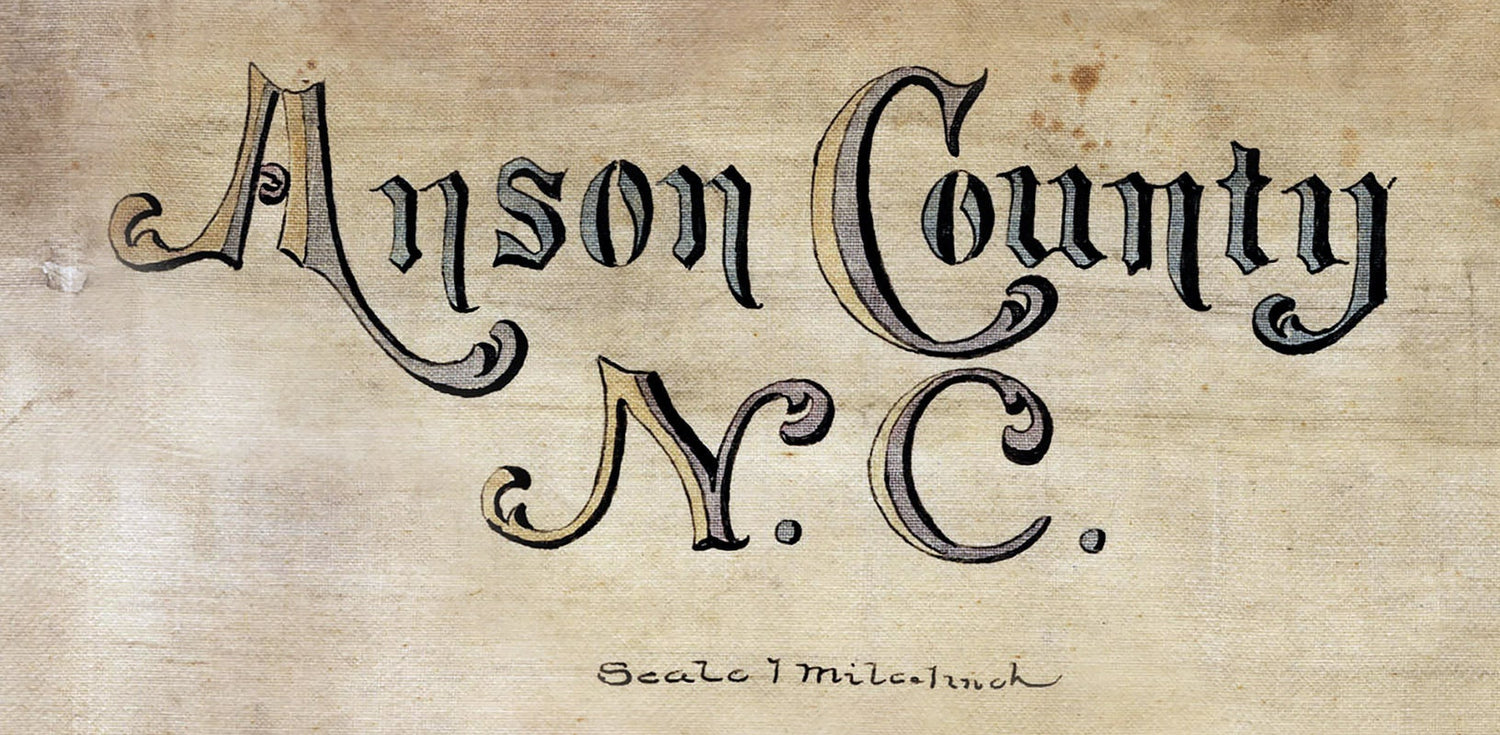 Anson County
N. C.
Scale 1 Mile = 1 inch